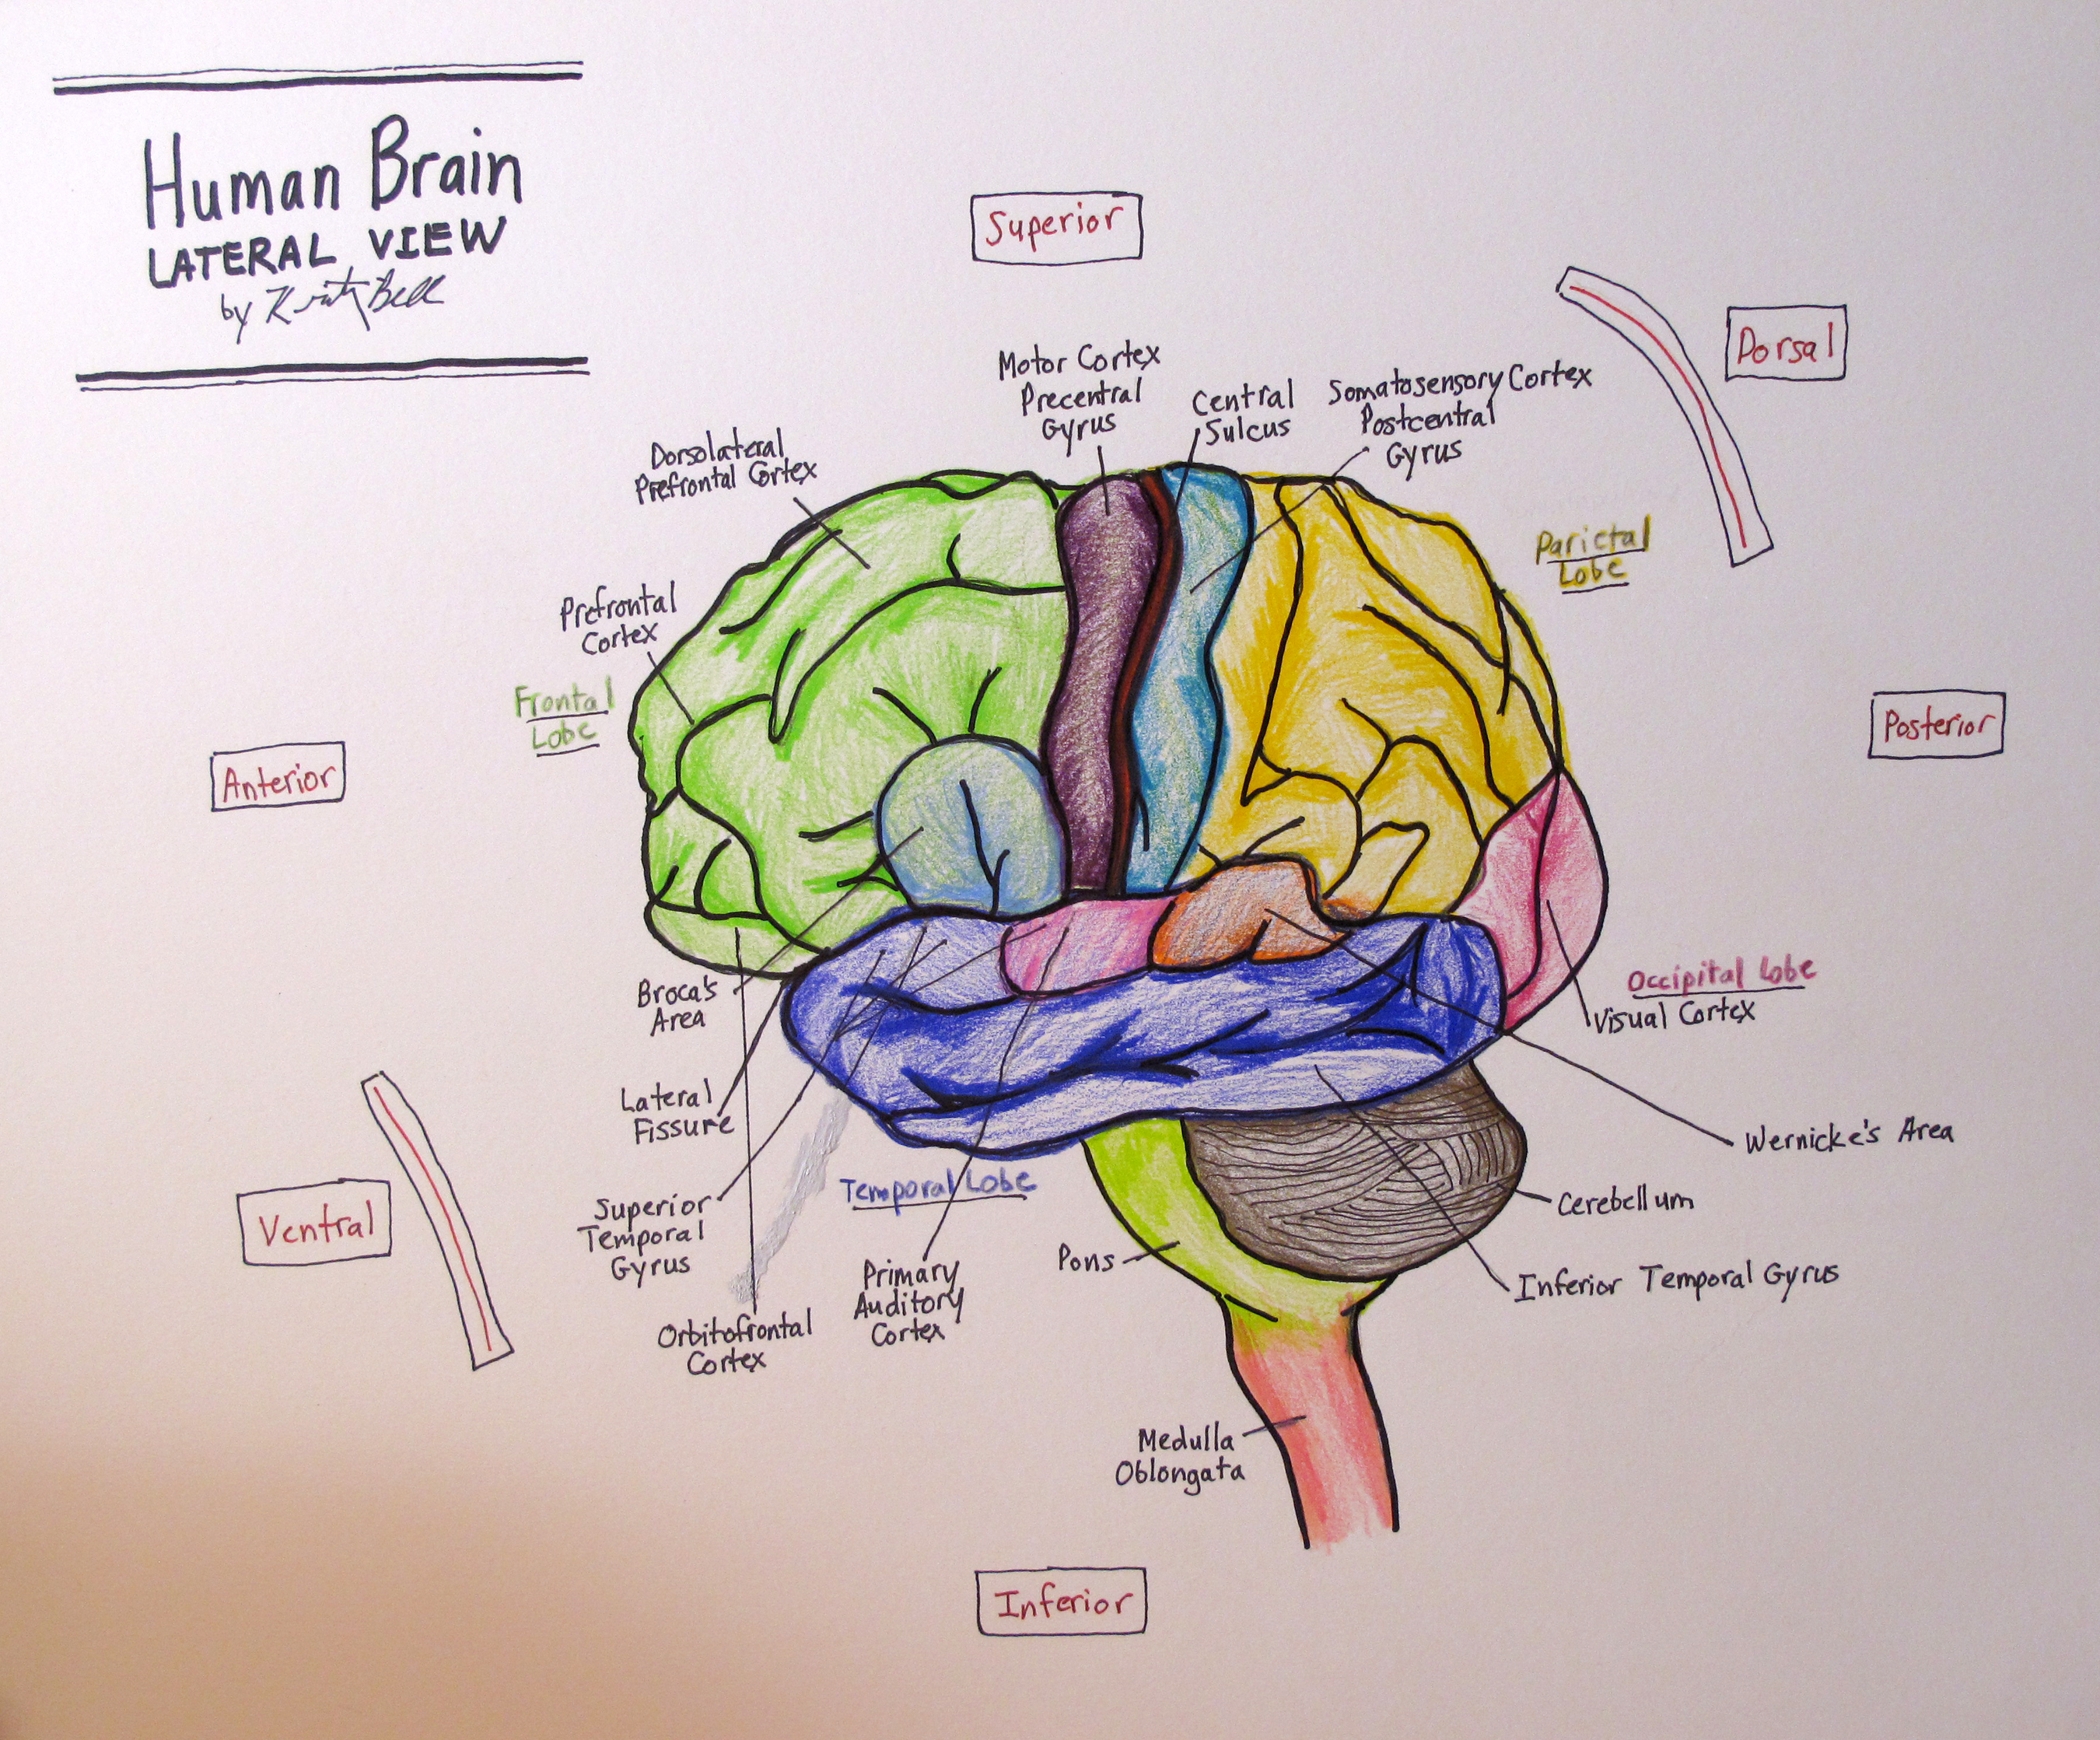 Human Brain
LATERAL VIEW
by Bell
Superior
Dorsal
Motor Cortex
Precentral
Gyrus
Central
Sulcus
Somatosensory Cortex
Postcentral
Gyrus
Dorsolateral
Prefrontal Cortex
Parietal
Lobe
Prefrontal
Cortex
Frontal
Lobe
Anterior
Posterior
Broca's
Area
Occipital Lobe
Visual Cortex
Lateral
Fissure
Wernicke's Area
Temporal Lobe
Cerebellum
Ventral
Superior
Temporal
Gyrus
Pons
Inferior Temporal Gyrus
Primary
Auditory
Cortex
Orbitofrontal
Cortex
Medulla
Oblongata
Inferior